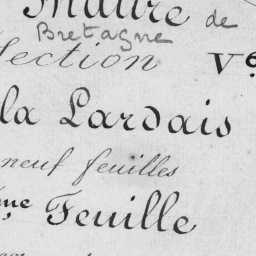 de
Bretagne
Section Ve
la Lardais
neuf feuilles
me Feuille